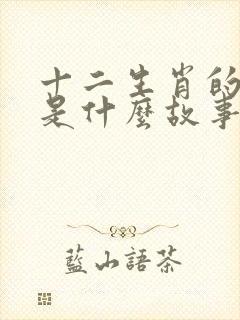 十二生肖的
是什麼故事
藍山語茶